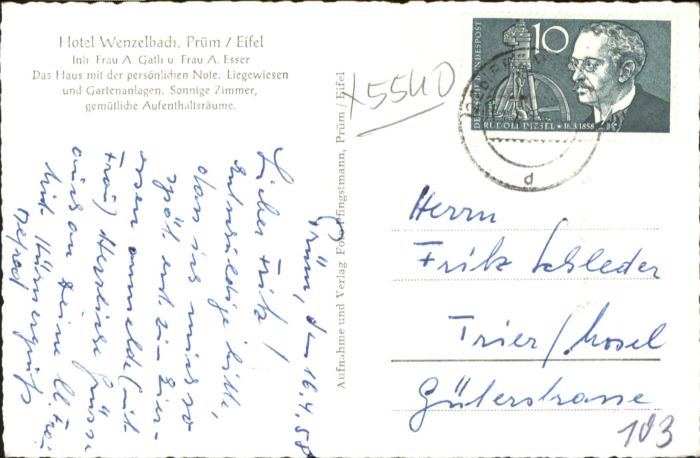 Hotel Wenzelbach, Prüm / Eifel
Inh Frau A Gath u Frau A. Esser
Das Haus mit der persönlichen Note. Liegewiesen
und Gartenanlagen. Sonnige Zimmer,
gemütliche Aufenthaltsräume.
x5540
DEUTSCHE BUNDESPOST
10
RUDOLF DIESEL * 18.3.1858
d
Aufnahme und Verlag Foto Pfingstmann, Prüm / Eifel
Prüm, den 16.4.58
Lieber Fritz!
Entschuldige bitte,
dass ich mich so
spät erst zum Eier-
essen anmelde (mit
Frau) Herzliche Grüsse
auch an Deine lb. Frau
Mit
Herrn
Fritz Schleder
Trier/Mosel
Güterstrasse
103